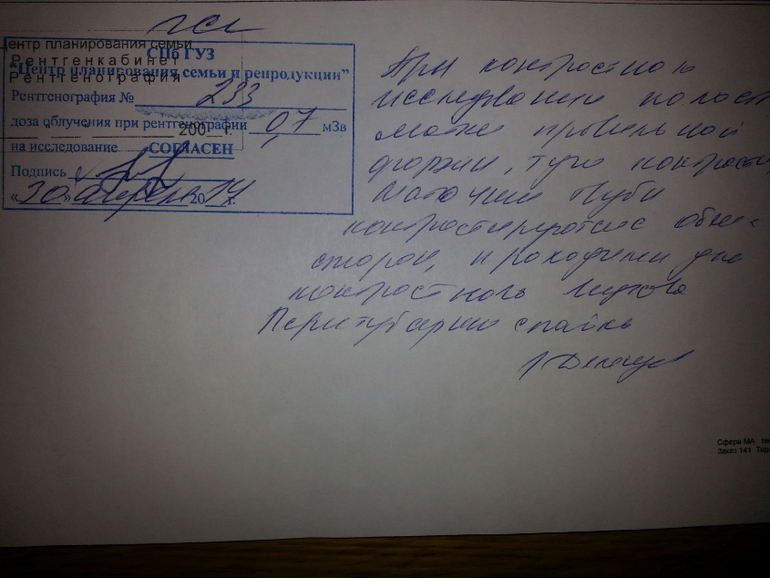 ГСГ
Центр планирования семьи
СПб ГУЗ
Рентгенкабинет
"Центр планирования семьи и репродукции"
Рентгенография
Рентгенография № 233
доза облучения при рентгенографии 0,7 мЗв
200 г.
на исследование СОГЛАСЕН
Подпись
«20» апреля 2014 г.
При контрастном
исследовании полость
матки правильной
формы, туго контраст
Маточные трубы
контрастируются с обеих
сторон, проходимы для
контрастного
Перитубарные спайки
Сфера МА
Заказ 141